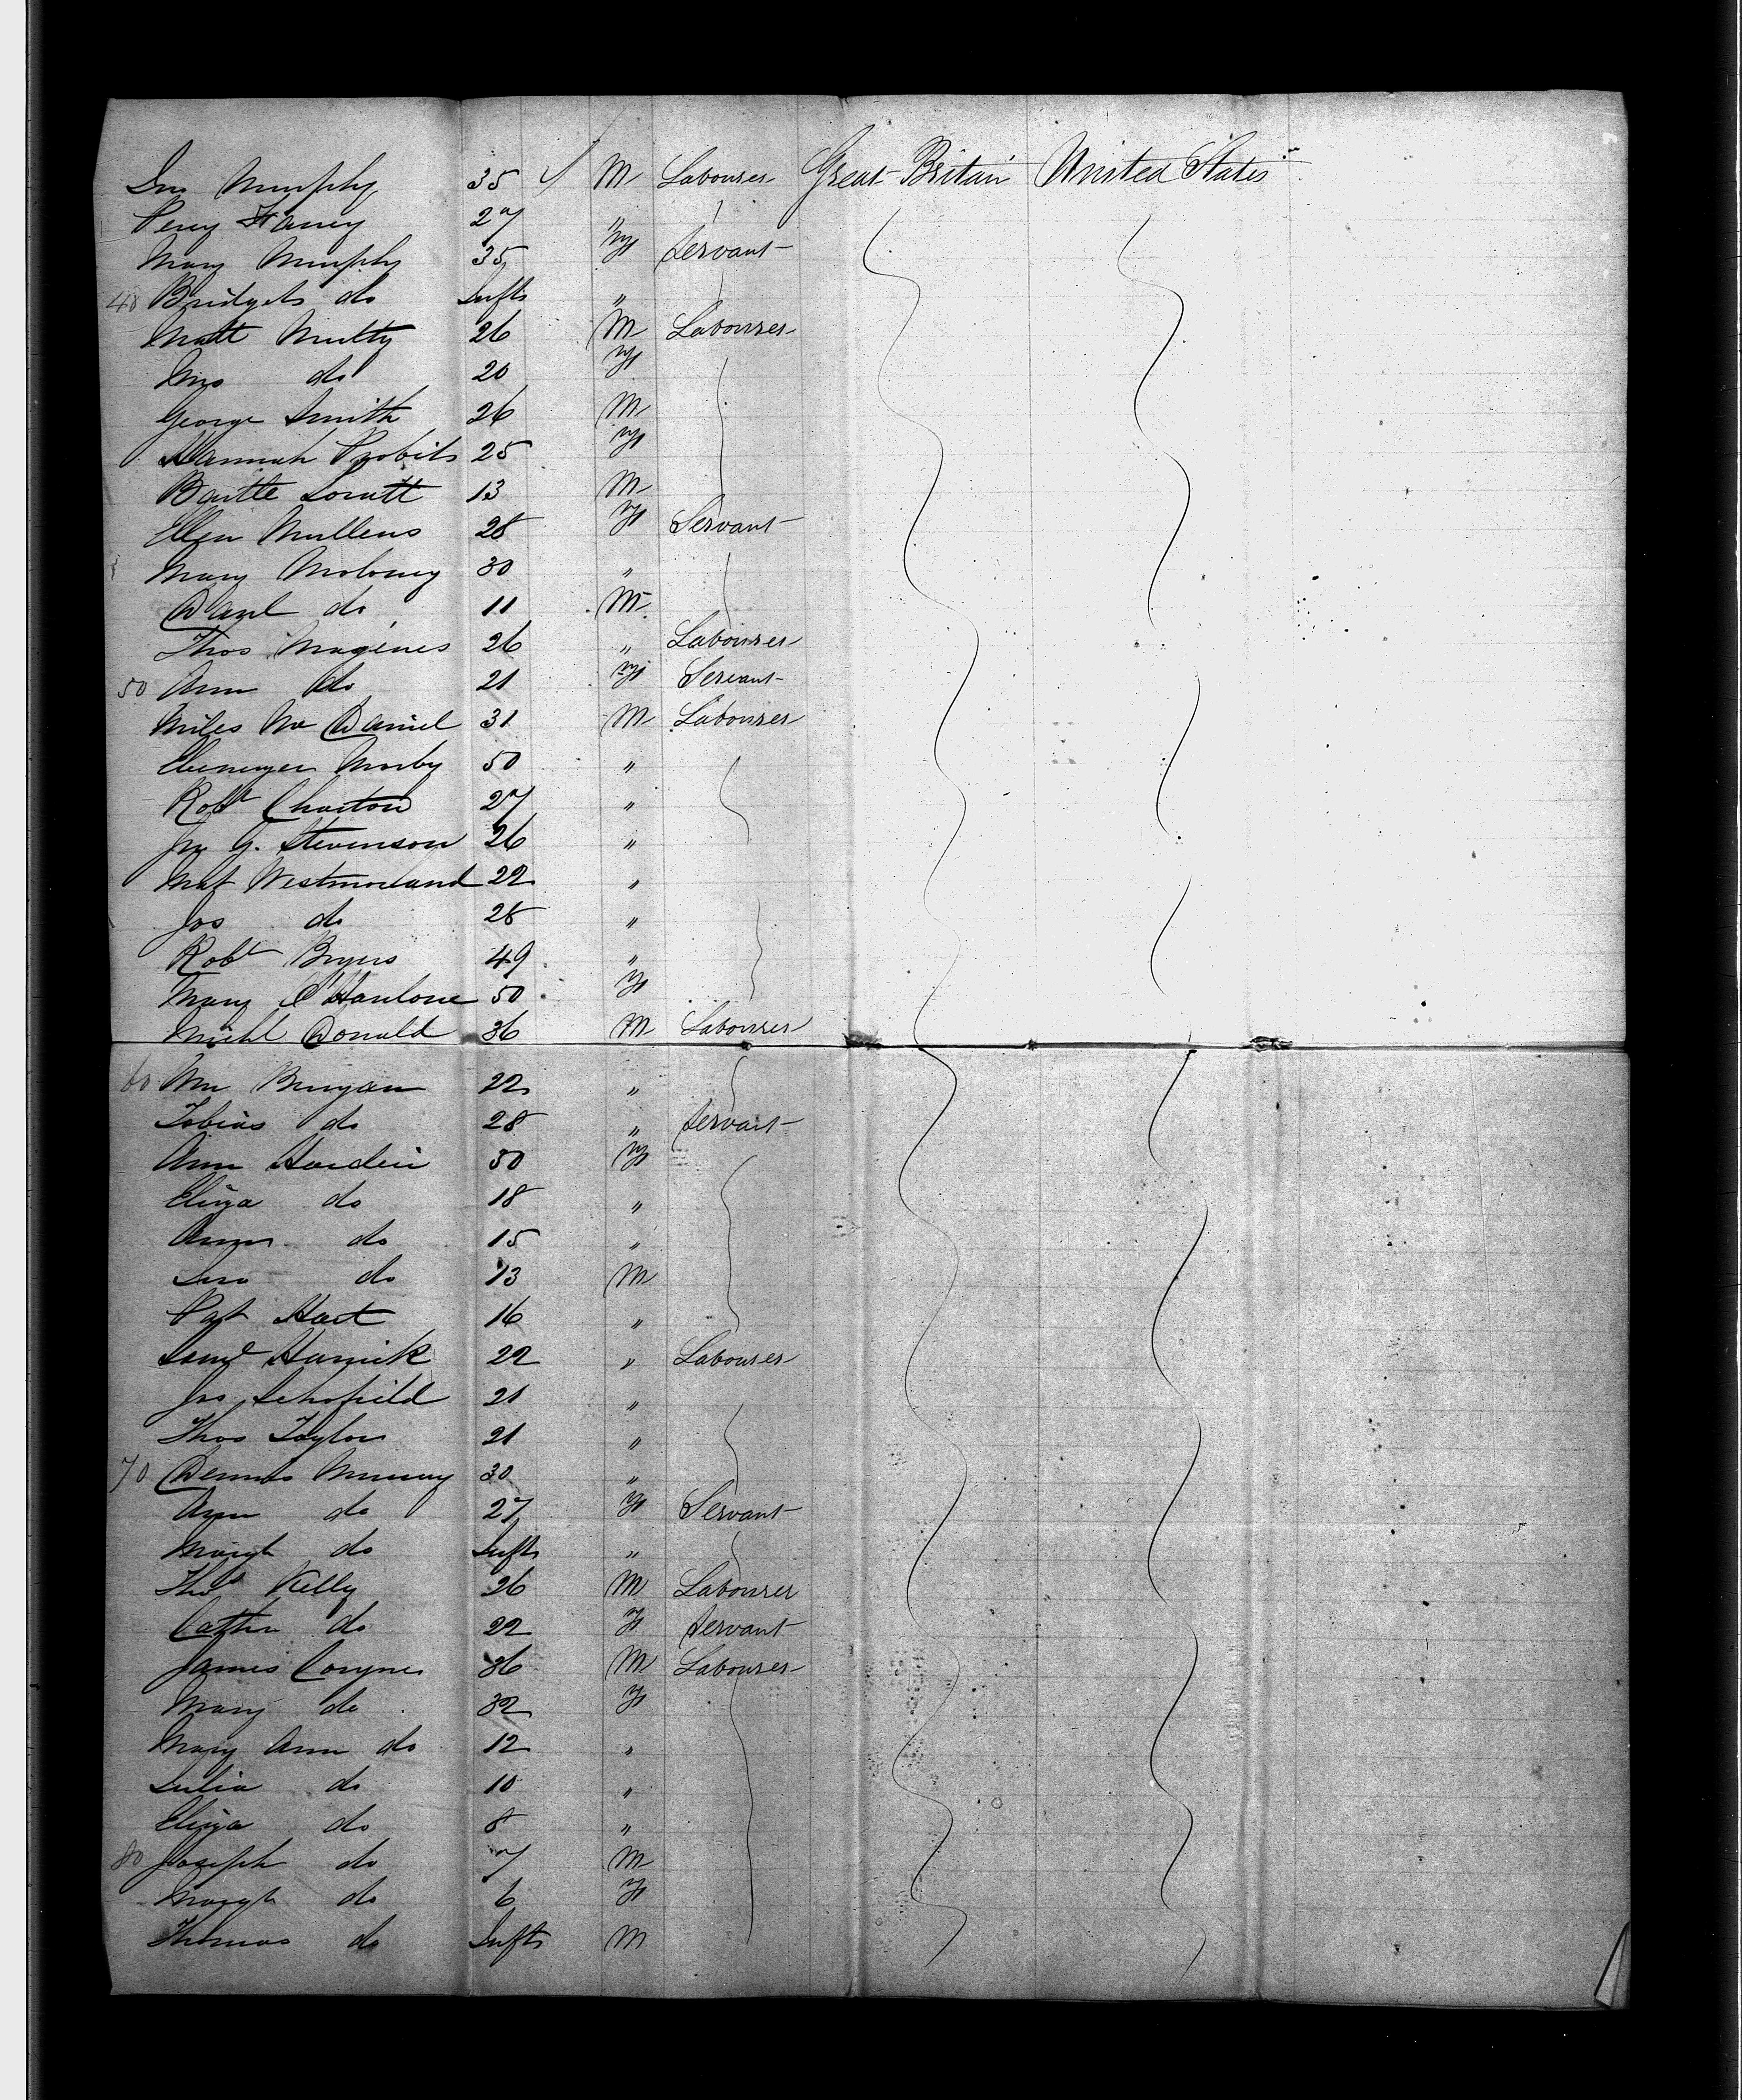 Jno Murphy 35 M Labourer Great Britain United States
Percy Harvey 27 "
Mary Murphy 35 F Servant
40 Bridget do Infts "
Matt Multy 26 M Labourer
do 20 F
George Smith 26 M
Hannah Probits 25 F
Bartle 13 M
Ellen Mullens 28 F Servant
Mary Moloney 30 "
Danl do 11 M
Thos Magines 26 " Labourer
50 Ann do 21 F Servant
Miles Mc Daniel 31 M Labourer
Ebenezer Moxby 50 "
Robt Charton 27 "
Jno G. Stevenson 26 "
Mat Westmoreland 22 "
Jos do 28 "
Robt Byers 49 "
Mary O'Hanlone 50 F
Michl Donald 36 M Labourer
60 Wm Bunyan 22 "
Tobias do 28 " Servant
Ann Hardin 50 F
Eliza do 18 "
Ann do 15 "
Jno do 13 M
Pat Hart 16 "
Saml 22 " Labourer
Jas Schofield 21 "
Thos Taylor 21 "
70 Dennis Murray 30 "
Ann do 27 F Servant
Margt do Infts "
Thos Kelly 26 M Labourer
Cathn do 22 F Servant
James Coyne 36 M Labourer
Mary do 32 F
Mary Ann do 12 "
Julia do 10 "
Eliza do 8 "
80 Joseph do 7 M
Margt do 6 F
Thomas do Infts M